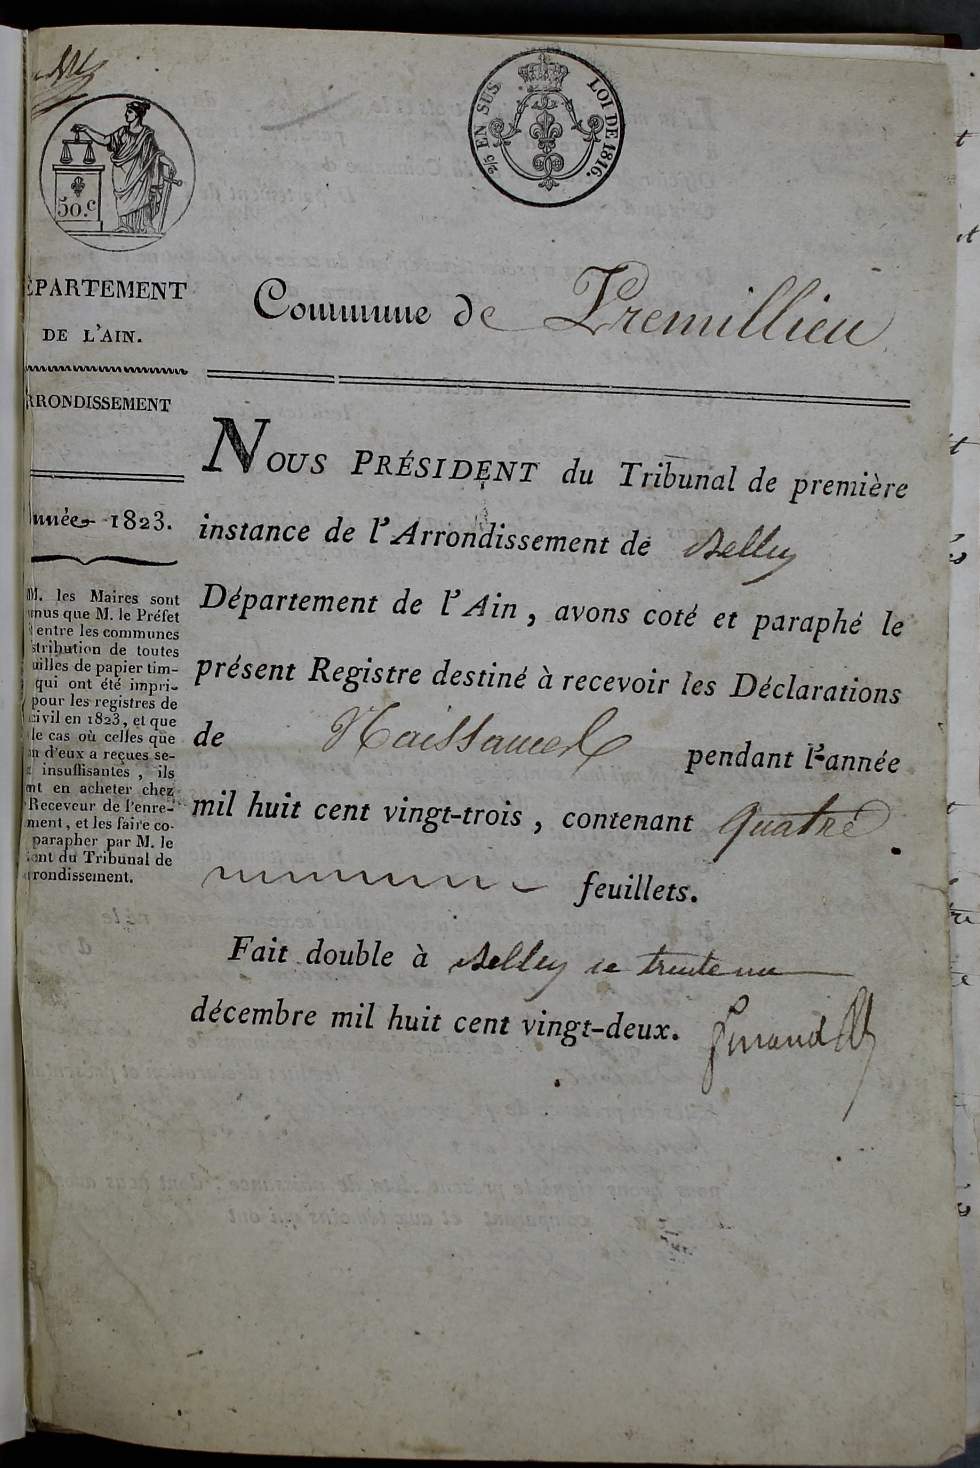 50.c
2/5 EN SUS
LOI DE 1816.
ÉPARTEMENT
DE L'AIN.
RRONDISSEMENT
nnée 1823.
M. les Maires sont
nus que M. le Préfet
entre les communes
stribution de toutes
uilles de papier tim-
qui ont été impri-
pour les registres de
civil en 1823, et que
le cas où celles que
n d'eux a reçues se-
insuffisantes, ils
nt en acheter chez
Receveur de l'enre-
ment, et les faire co-
parapher par M. le
ent du Tribunal de
rrondissement.
Commune de Premillieu
NOUS PRÉSIDENT du Tribunal de première
instance de l'Arrondissement de Belley
Département de l'Ain, avons coté et paraphé le
présent Registre destiné à recevoir les Déclarations
de Naissance pendant l'année
mil huit cent vingt-trois, contenant quatre
feuillets.
Fait double à Belley le trente un
décembre mil huit cent vingt-deux.